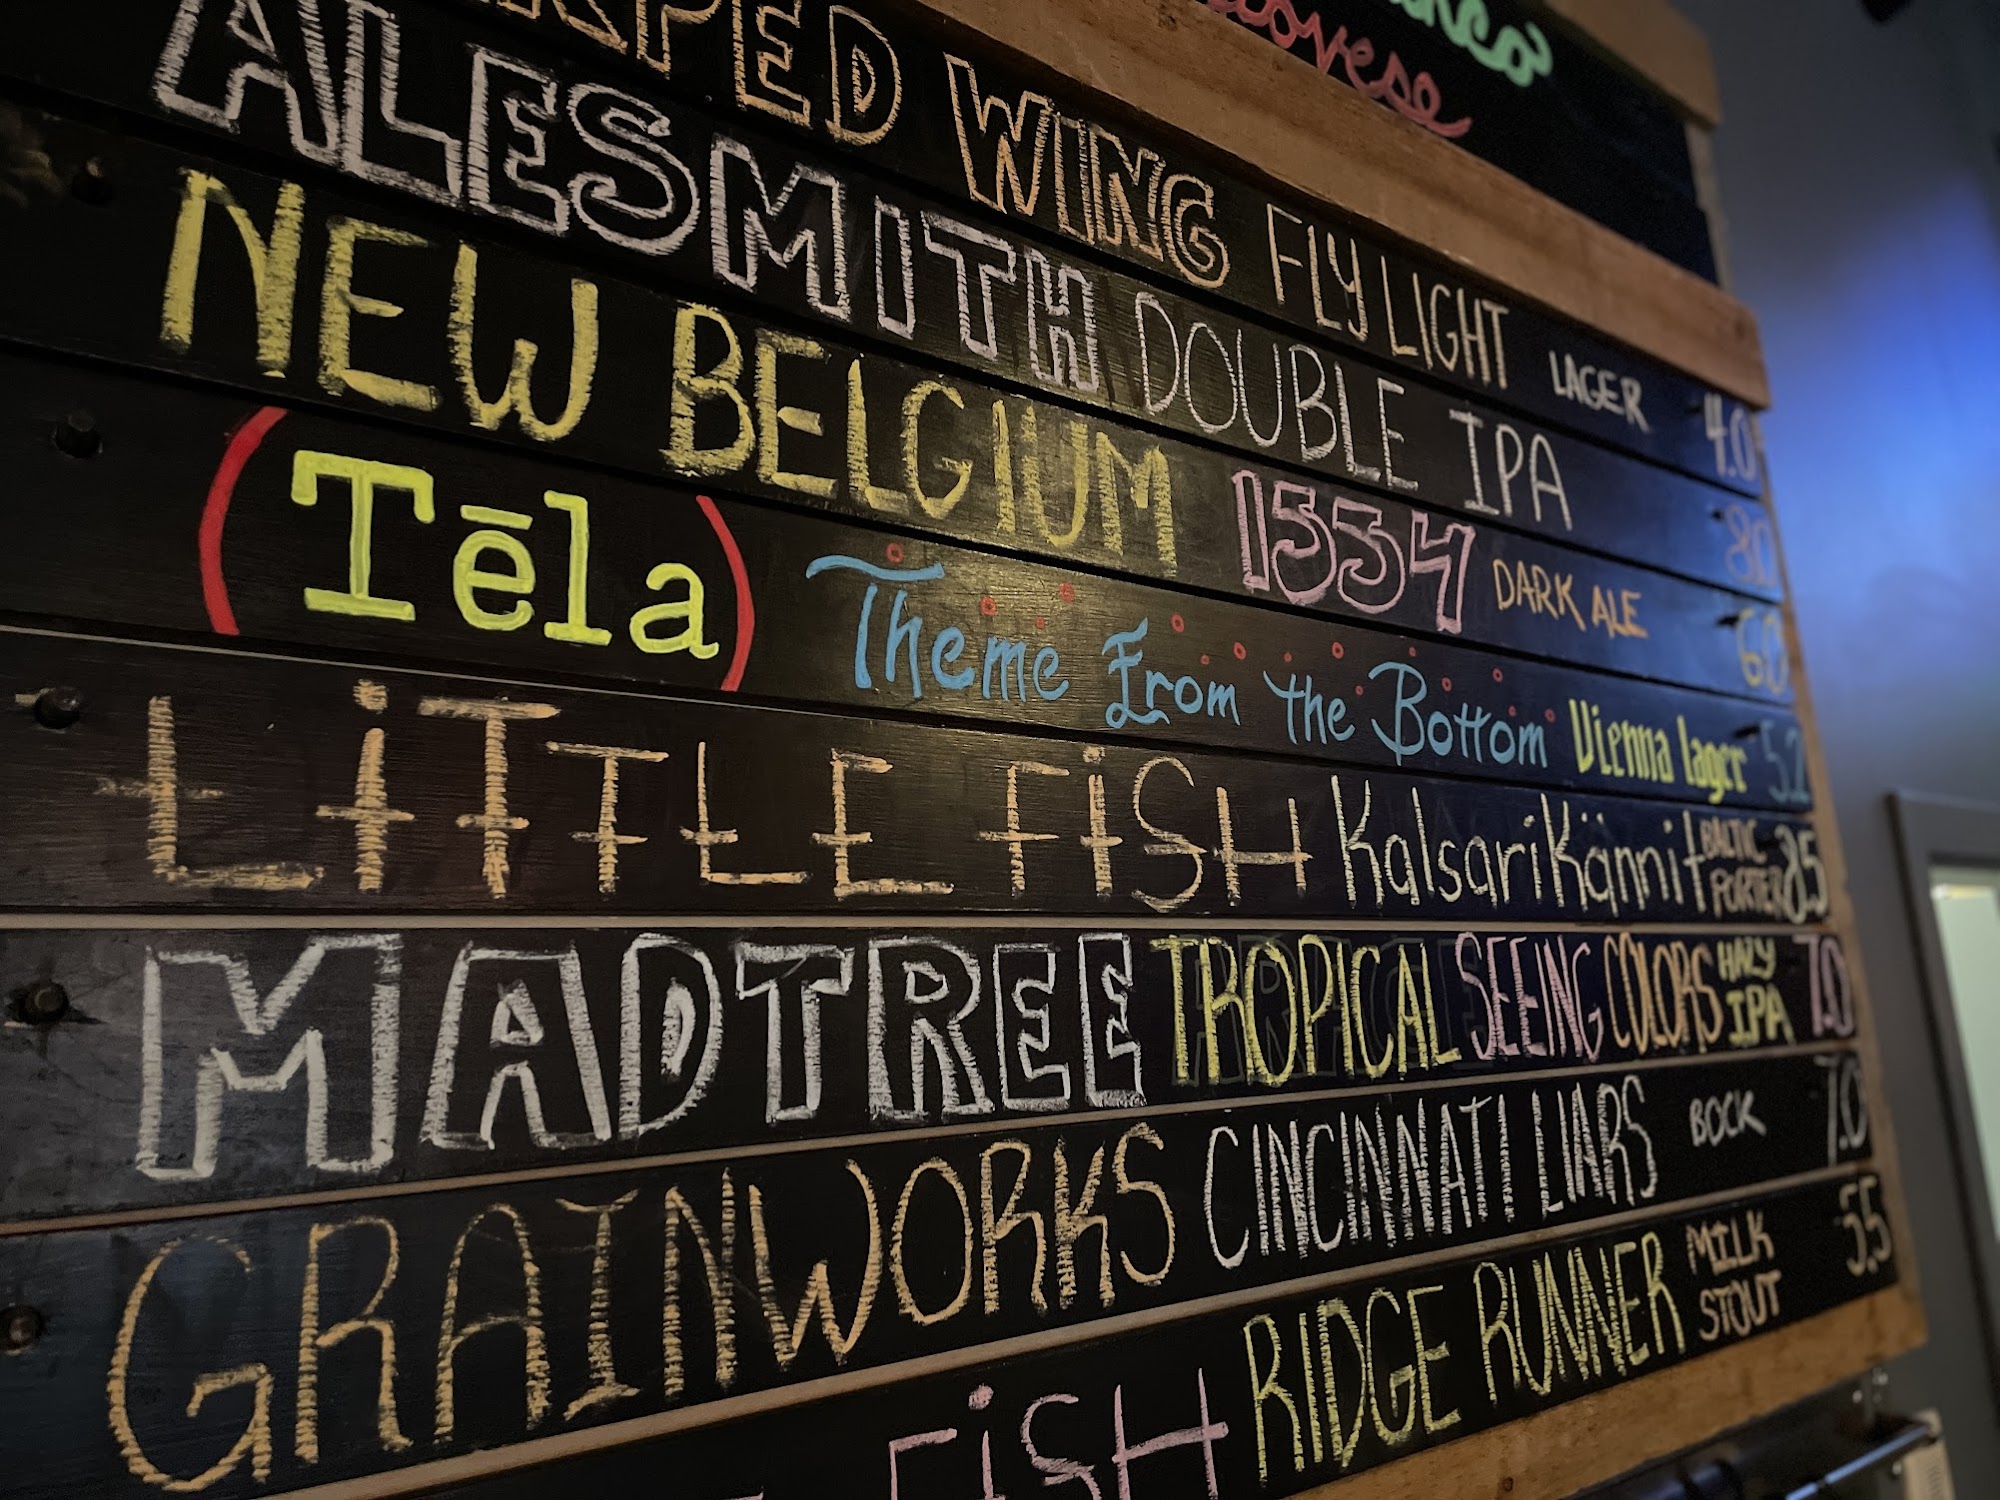 WING FLY LIGHT LAGER 4.0
ALESMITH DOUBLE IPA 8.0
NEW BELGIUM 1554 DARK ALE 6.0
(Tēla) Theme From the Bottom Vienna lager 5.2
LiTTLE FiSH KalsariKännit BALTIC PORTER 8.5
MADTREE TROPICAL SEEING COLORS HAZY IPA 7.0
GRAINWORKS CINCINNATI LIARS BOCK 7.0
FiSH RIDGE RUNNER MILK STOUT 5.5